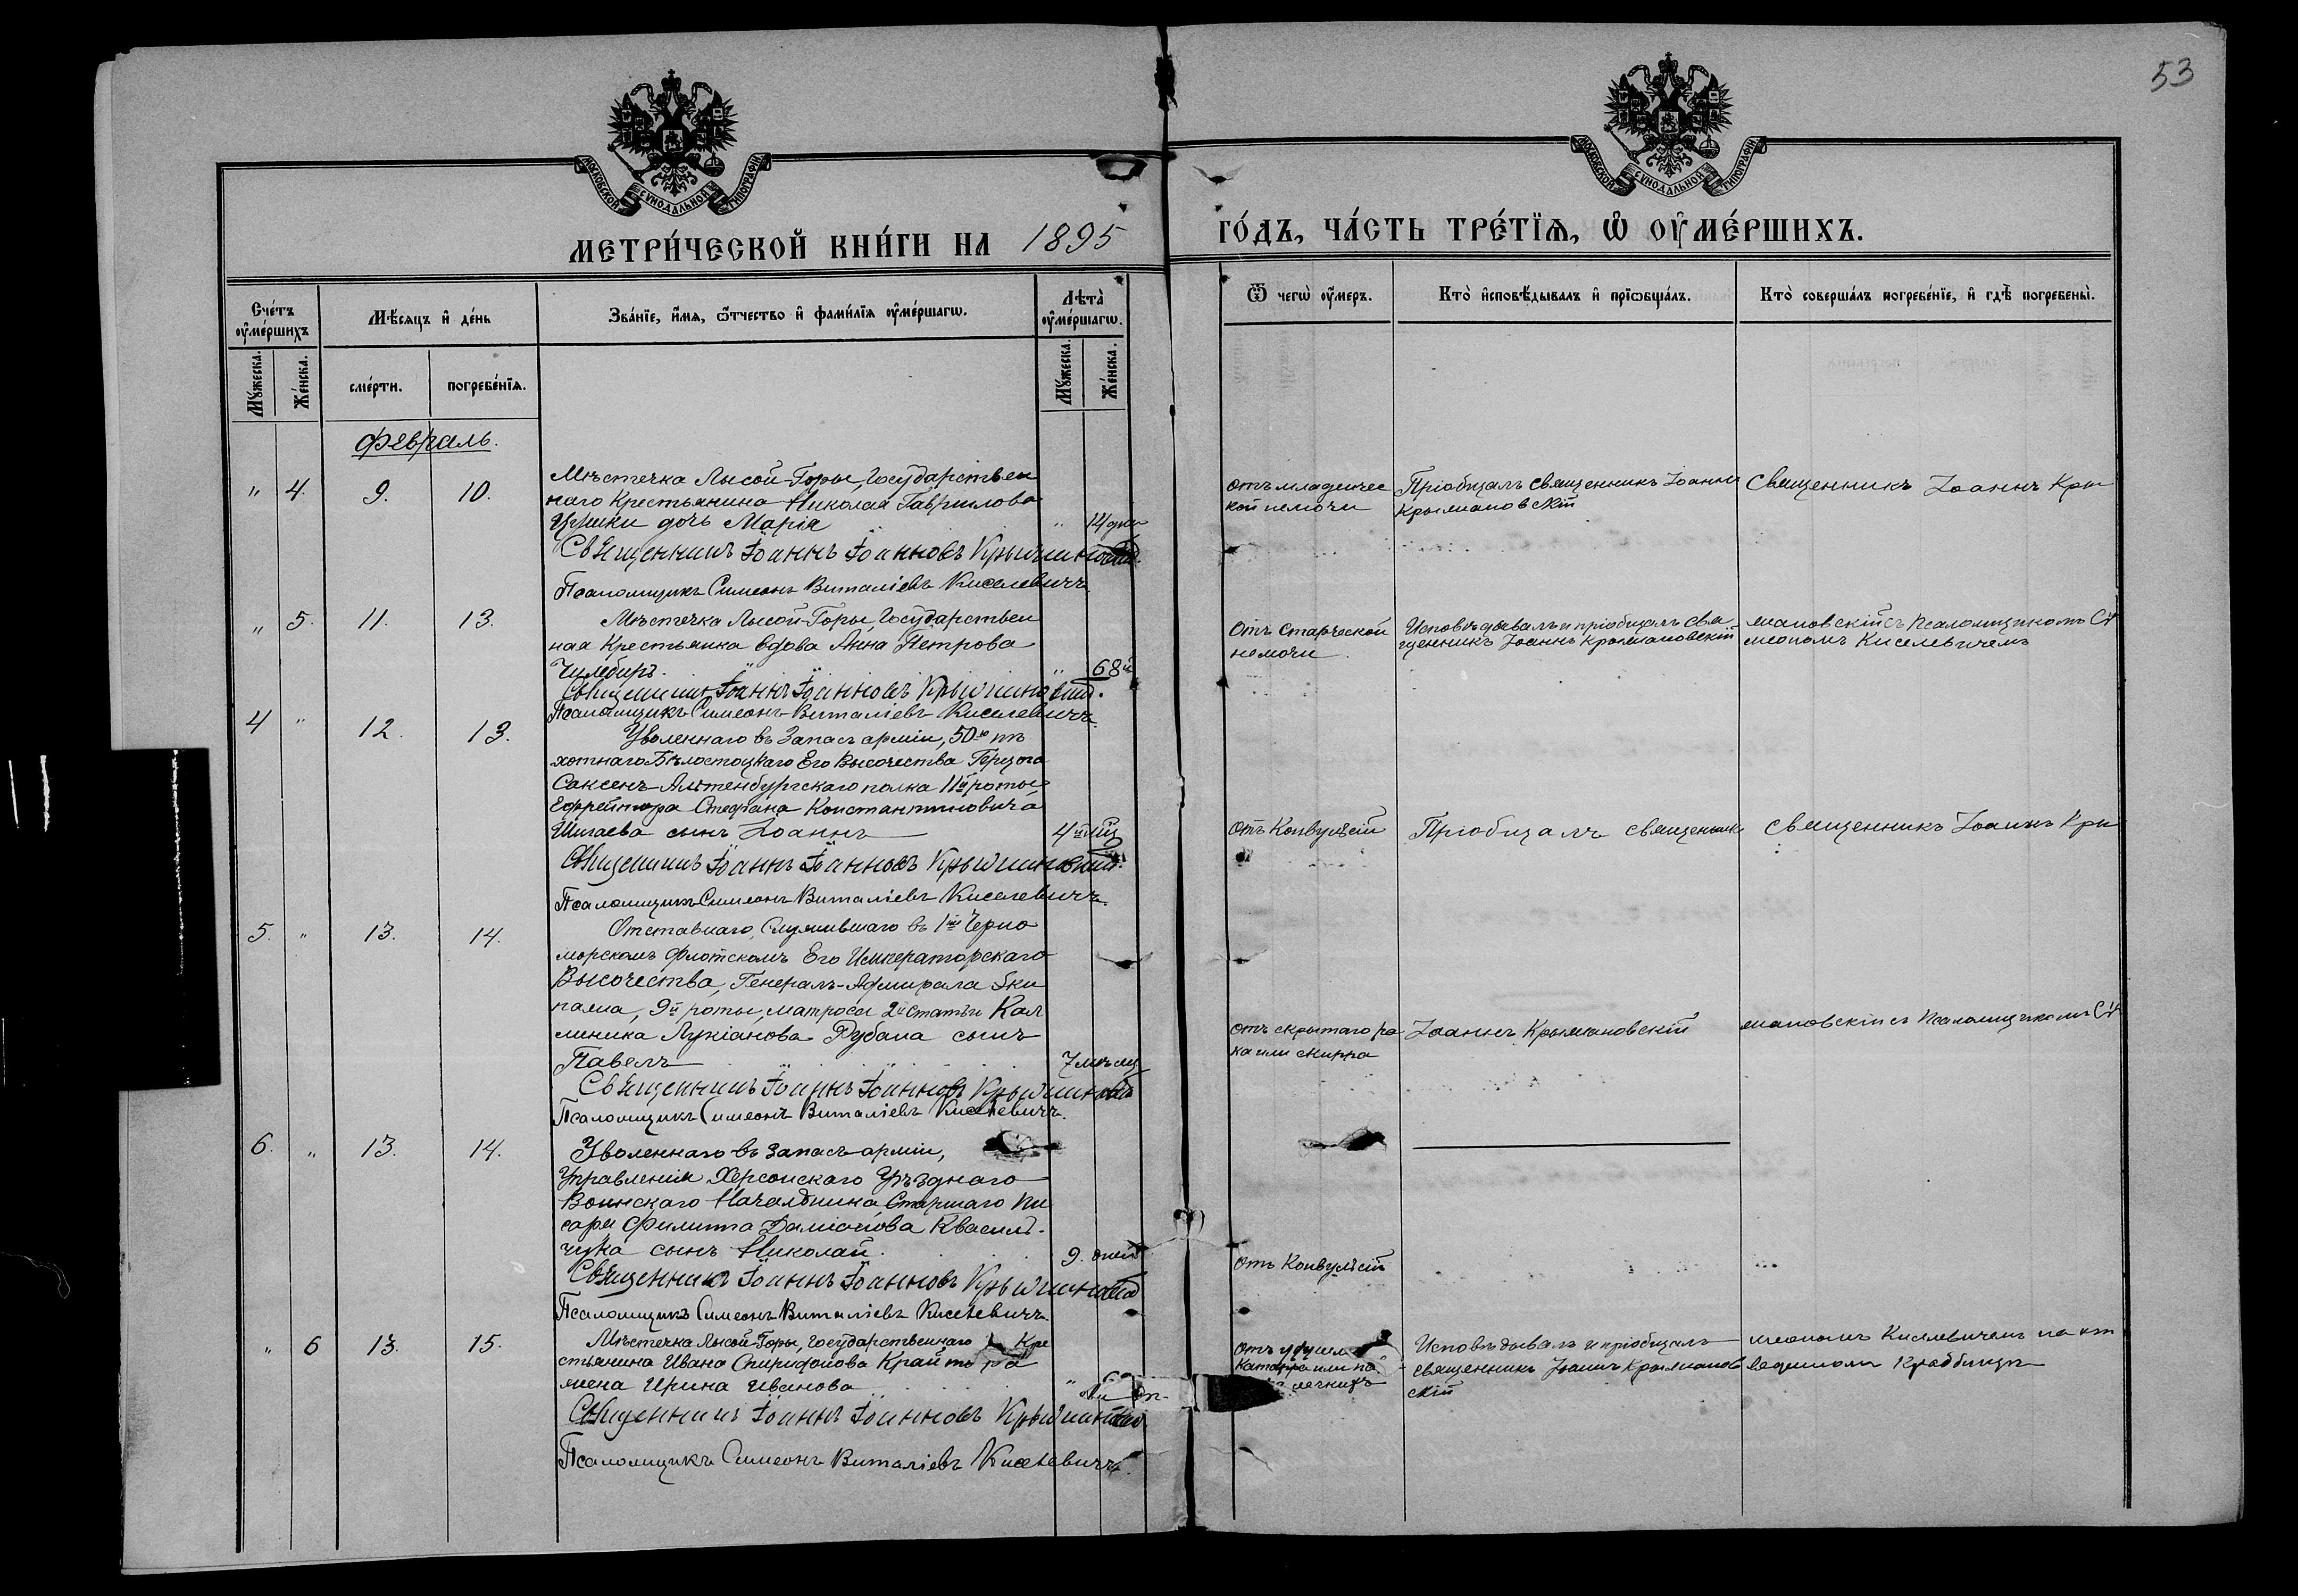 53
МОСКОВСКОЙ СѴНОДАЛЬНОЙ ТИПОГРАФІИ
МОСКОВСКОЙ СѴНОДАЛЬНОЙ ТИПОГРАФІИ
МЕТРИ́ЧЕСКОЙ КНИ́ГИ НА 1895
ГО́ДЪ, ЧА́СТЬ ТРЕ́ТЇѦ, Ѡ҆ ОУ҆МЕ́РШИХЪ.
Сче́тъ оу҆ме́ршихъ
Мѣ́сѧцъ и҆ де́нь
Зва́нїе, и҆́мѧ, ѻ҆́тчество и҆ фами́лїѧ оу҆ме́ршагѡ.
Лѣта̀ оу҆ме́ршагѡ.
Мꙋ́жеска.
Же́нска.
сме́рти.
погребе́нїѧ.
Мꙋ́жеска.
Же́нска.
Ѿ чегѡ̀ оу҆́меръ.
Кто̀ и҆сповѣ́дывалъ и҆ прїѡбща́лъ.
Кто̀ соверша́лъ погребе́нїе, и҆ гдѣ̀ погребены̀.
Февраль.
" 4. 9. 10.
Мѣстечка Лысой-Горы, Государствен
наго Крестьянина Николая Гаврилова
дочь Марія " 14 дней
Священникъ Іоаннъ Іоанновъ Крыжановскій.
Псаломщикъ Симеонъ Виталіевъ Киселевичъ
отъ младенчес
кой немочи
Пріобщалъ Священникъ Іоаннъ
Крыжановскій
Священникъ Іоаннъ Кры
" 5. 11. 13.
Мѣстечка Лысой-Горы, Государствен
ная Крестьянка вдова Анна Петрова
Чилебиръ. " 68
Священникъ Іоаннъ Іоанновъ Крыжановскій.
Псаломщикъ Симеонъ Виталіевъ Киселевичъ.
Отъ старческой
немочи
Исповѣдывалъ и пріобщалъ Свя
щенникъ Іоаннъ Крыжановскій
жановскій съ Псаломщикомъ Си
меономъ Киселевичемъ
4 " 12. 13.
Уволеннаго въ Запасъ арміи, 50-го пѣ
хотнаго Бѣлостоцкаго Его Высочества Герцога
Саксенъ-Альтенбургскаго полка 11й роты,
Ефрейтора Стефана Константиновича
Шигаева сынъ Іоаннъ
Священникъ Іоаннъ Іоанновъ Крыжановскій.
Псаломщикъ Симеонъ Виталіевъ Киселевичъ.
Отъ Конвульсій
Пріобщалъ Священникъ
Священникъ Іоаннъ Кры
5. " 13. 14.
Отставнаго, Служившаго въ 1мъ Черно
морскомъ Флотскомъ Его Императорскаго
Высочества, Генералъ-Адмирала Эки
пажа, 9й роты, матроса 2й статьи Кал
линика Лукіанова Рубана сынъ
Павелъ 7 мѣсяц
Священникъ Іоаннъ Іоанновъ Крыжановскій
Псаломщикъ Симеонъ Виталіевъ Киселевичъ.
отъ скрытаго ра
ка или скирра
Іоаннъ Крыжановскій
жановскій съ Псаломщикомъ Си
6. " 13. 14.
Уволеннаго въ Запасъ арміи,
Управленія Херсонскаго Уѣзднаго
Воинскаго Начальника Старшаго Пи
саря Филиппа Даміанова Квасиль-
чука сынъ Николай. 9. дней
Священникъ Іоаннъ Іоанновъ Крыжановскій
Псаломщикъ Симеонъ Виталіевъ Киселевичъ.
Отъ Конвульсій
" 6 13. 15.
Мѣстечка Лысой-Горы, Государственнаго Кре
стьянина Ивана Спиридонова Крайтора
жена Ирина Иванова
Священникъ Іоаннъ Іоанновъ Крыжановскій
Псаломщикъ Симеонъ Виталіевъ Киселевичъ.
Исповѣдывалъ и пріобщалъ
священникъ Іоаннъ Крыжанов
скій
меономъ Киселевичемъ на от
веденномъ Кладбищѣ